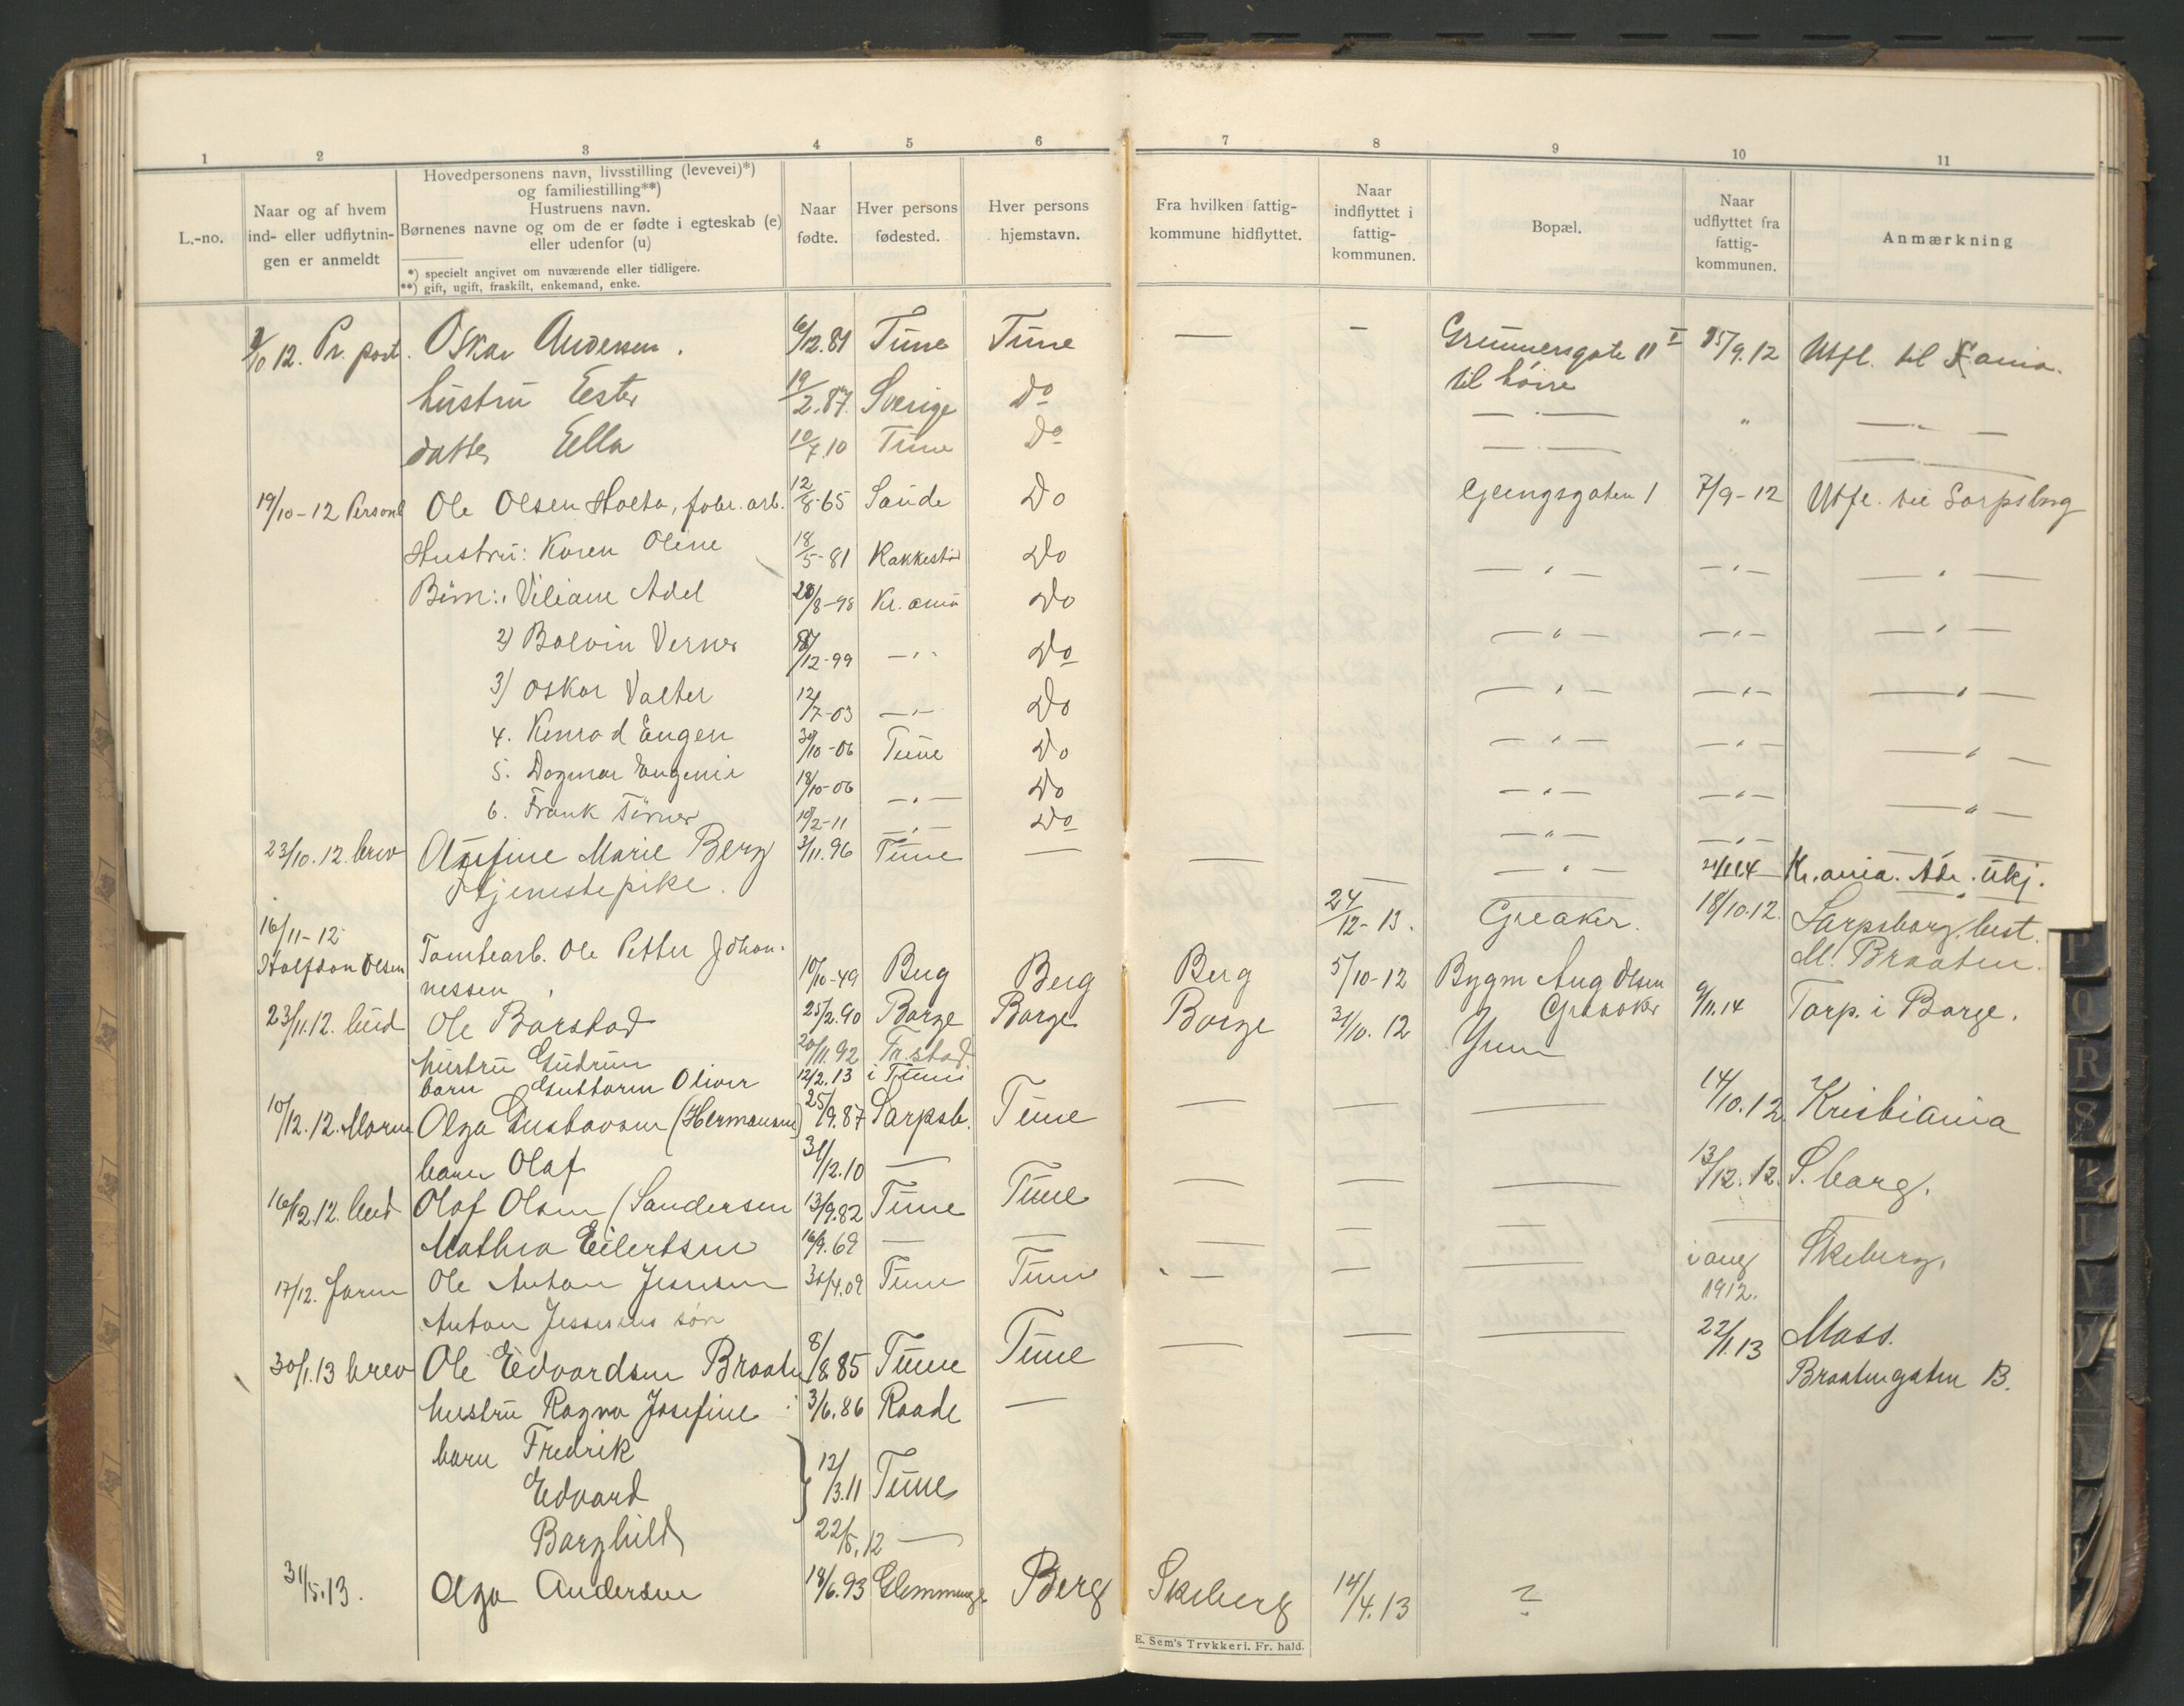 1 2 3 4 5 6 7 8 9 10 11
L.-no.
Naar og af hvem
ind- eller udflytnin-
gen er anmeldt
Hovedpersonens navn, livsstilling (levevei)*)
og familiestilling**)
Hustruens navn.
Børnenes navne og om de er fødte i egteskab (e)
eller udenfor (u)
*) specielt angivet om nuværende eller tidligere.
**) gift, ugift, fraskilt, enkemand, enke.
Naar
fødte.
Hver persons
fødested.
Hver persons
hjemstavn.
Fra hvilken fattig-
kommune hidflyttet.
Naar
indflyttet i
fattig-
kommunen.
Bopæl.
Naar
udflyttet fra
fattig-
kommunen.
Anmærkning
/10 12. Pr. post. Oskar Andersen. 6/12.81 Tune Tune — — Grünnersgate 11 I 15/9.12 Utfl. til K.ania.
til høire
hustru Ester 19/2.87. Sverige Do — " — " — " —
datter Ella 10/7.10 Tune Do — " —
19/10-12 Personl Ole Olsen Holta, fabr. arb. 12/8-65 Sande Do Glengsgaten 1 7/9-12 Utfl. til Sarpsborg
Hustru: Karen Oline 18/5-81 Rakkestad Do — " — — " — — " —
Børn: 1 Viliam Adel 20/8-98 Kr.ania Do — " — — " — — " —
2) Bolvin Verner /12-99 — " — Do — " — — " — — " —
3) Oskar Valter 12/7-03 — " — Do — " — — " — — " —
4. Konrad Eugen 30/10-06 Tune Do — " — — " — — " —
5. Dagmar Eugenie 18/10-06 — " — Do — " — — " — — " —
6. Frank Tørner 19/2-11 — " — Do — " — — " —
23/10.12. brev Olufine Marie Berg 3/11.96 Tune — — — 21/1 14 Kr.ania. Adr. ukj.
Tjenestepike. 24/12-13. Greaker. 18/10.12. Sarpsborg, best.
M. Braaten.
16/11-12
Halfdan Olsen Tomtearb. Ole Petter Johan-
nessen 10/10-49 Berg Berg Berg 5/10-12 Bygm Aug Olsen
Greaaker
23/11.12. bud Ole Borstad 25/2.90 Borge Borge Borge 31/10.12 9/11.14 Torp. i Borge.
hustru Gudrun 20/11.92 Fr.stad
barn Guttorm Oliver 12/2.13 i Tune
10/12.12. Olga Gustavsen (Hermansen) 25/9.87 Sarpsb. Tune — — — 14/10.12. Kristiania
barn Olaf 31/12.10 —
16/12.12. bud Olaf Olsen (Sandersen 13/9.82 Tune Tune — — — 13/12.12. S.borg.
Mathea Eilertsen 16/9.69 — — — — — —
17/12. Ole Anton Jensen 30/4.09 Tune Tune — — — i aug 1912. Skeberg.
Anton Jessens søn
30/1.13 brev Ole Edvardsen Braaten 8/8.85 Tune Tune — — — 22/1.13 Moss.
Braatengaten 13.
hustru Ragna Josefine 3/6.86 Raade —
barn Fredrik
Edvard } 12/3.11 Tune
Borghild 22/5.12 —
31/5.13. Olga Andersen 18/6.93 Glemminge Berg Skeberg 14/4.13 ?
E. Sem's Trykkeri. Fr. hald.
P
Q
R
S
T
U
V
X